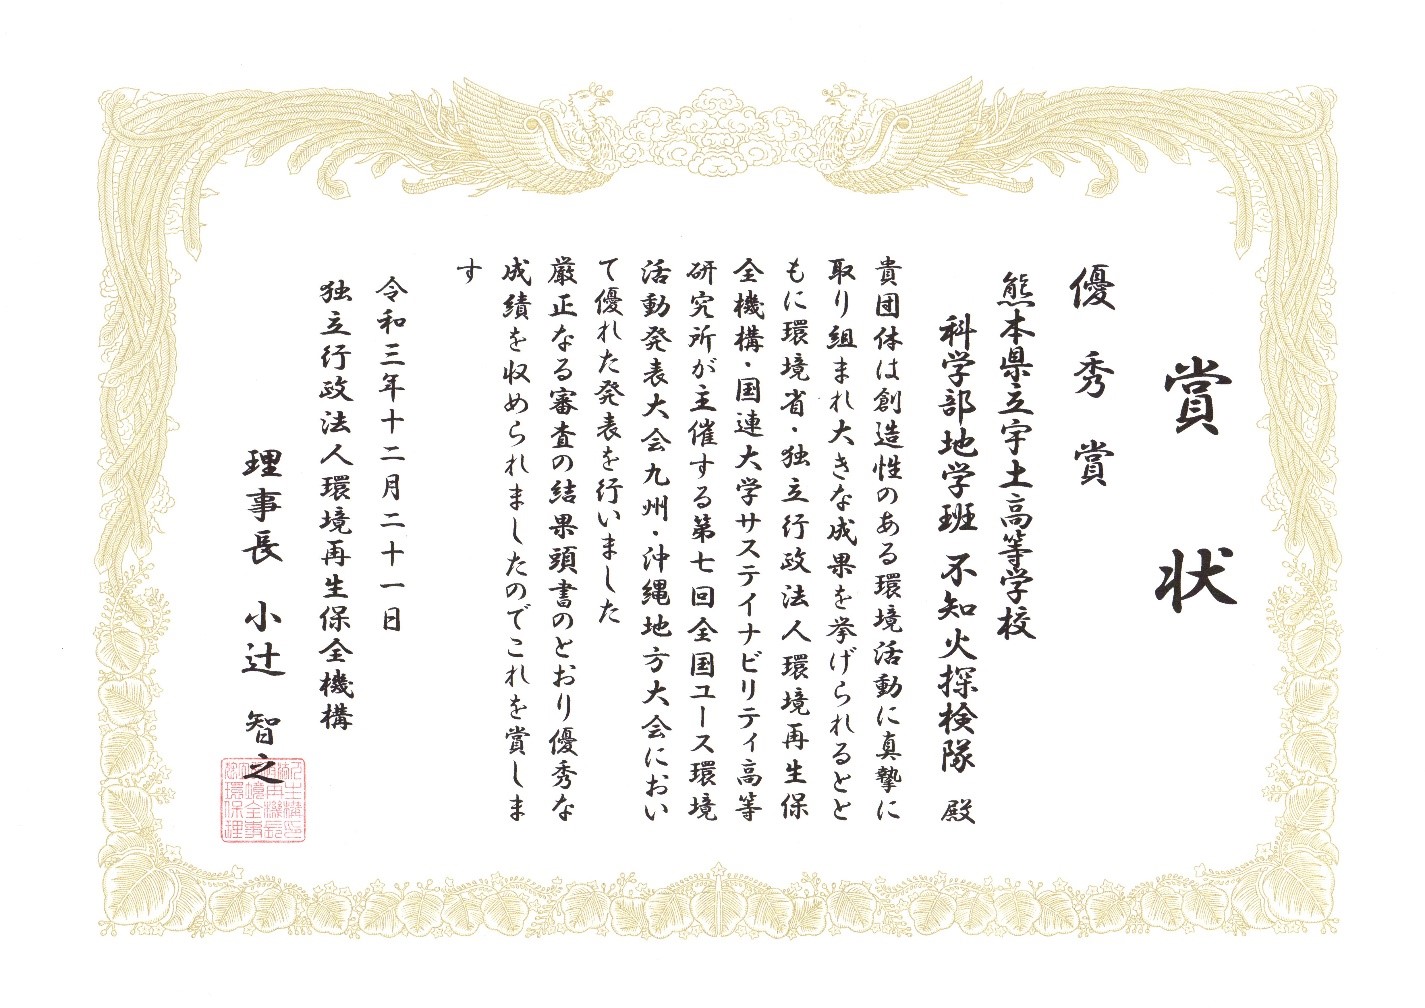 賞状
優秀賞
熊本県立宇土高等学校
科学部地学班 不知火探検隊 殿
貴団体は創造性のある環境活動に真摯に
取り組まれ大きな成果を挙げられるとと
もに環境省・独立行政法人環境再生保
全機構・国連大学サステイナビリティ高等
研究所が主催する第七回全国ユース環境
活動発表大会九州・沖縄地方大会におい
て優れた発表を行いました
厳正なる審査の結果頭書のとおり優秀な
成績を収められましたのでこれを賞しま
す
令和三年十二月二十一日
独立行政法人環境再生保全機構
理事長 小辻 智之